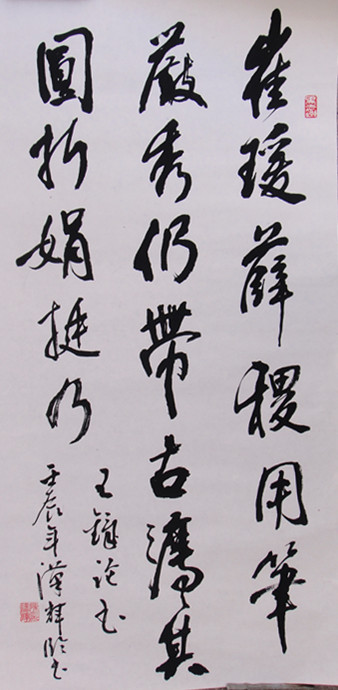 崔瑗薛稷用筆
嚴秀仍帶古濤其
圓折娟挺乃
王鐸論書
壬辰年漢輝臨書